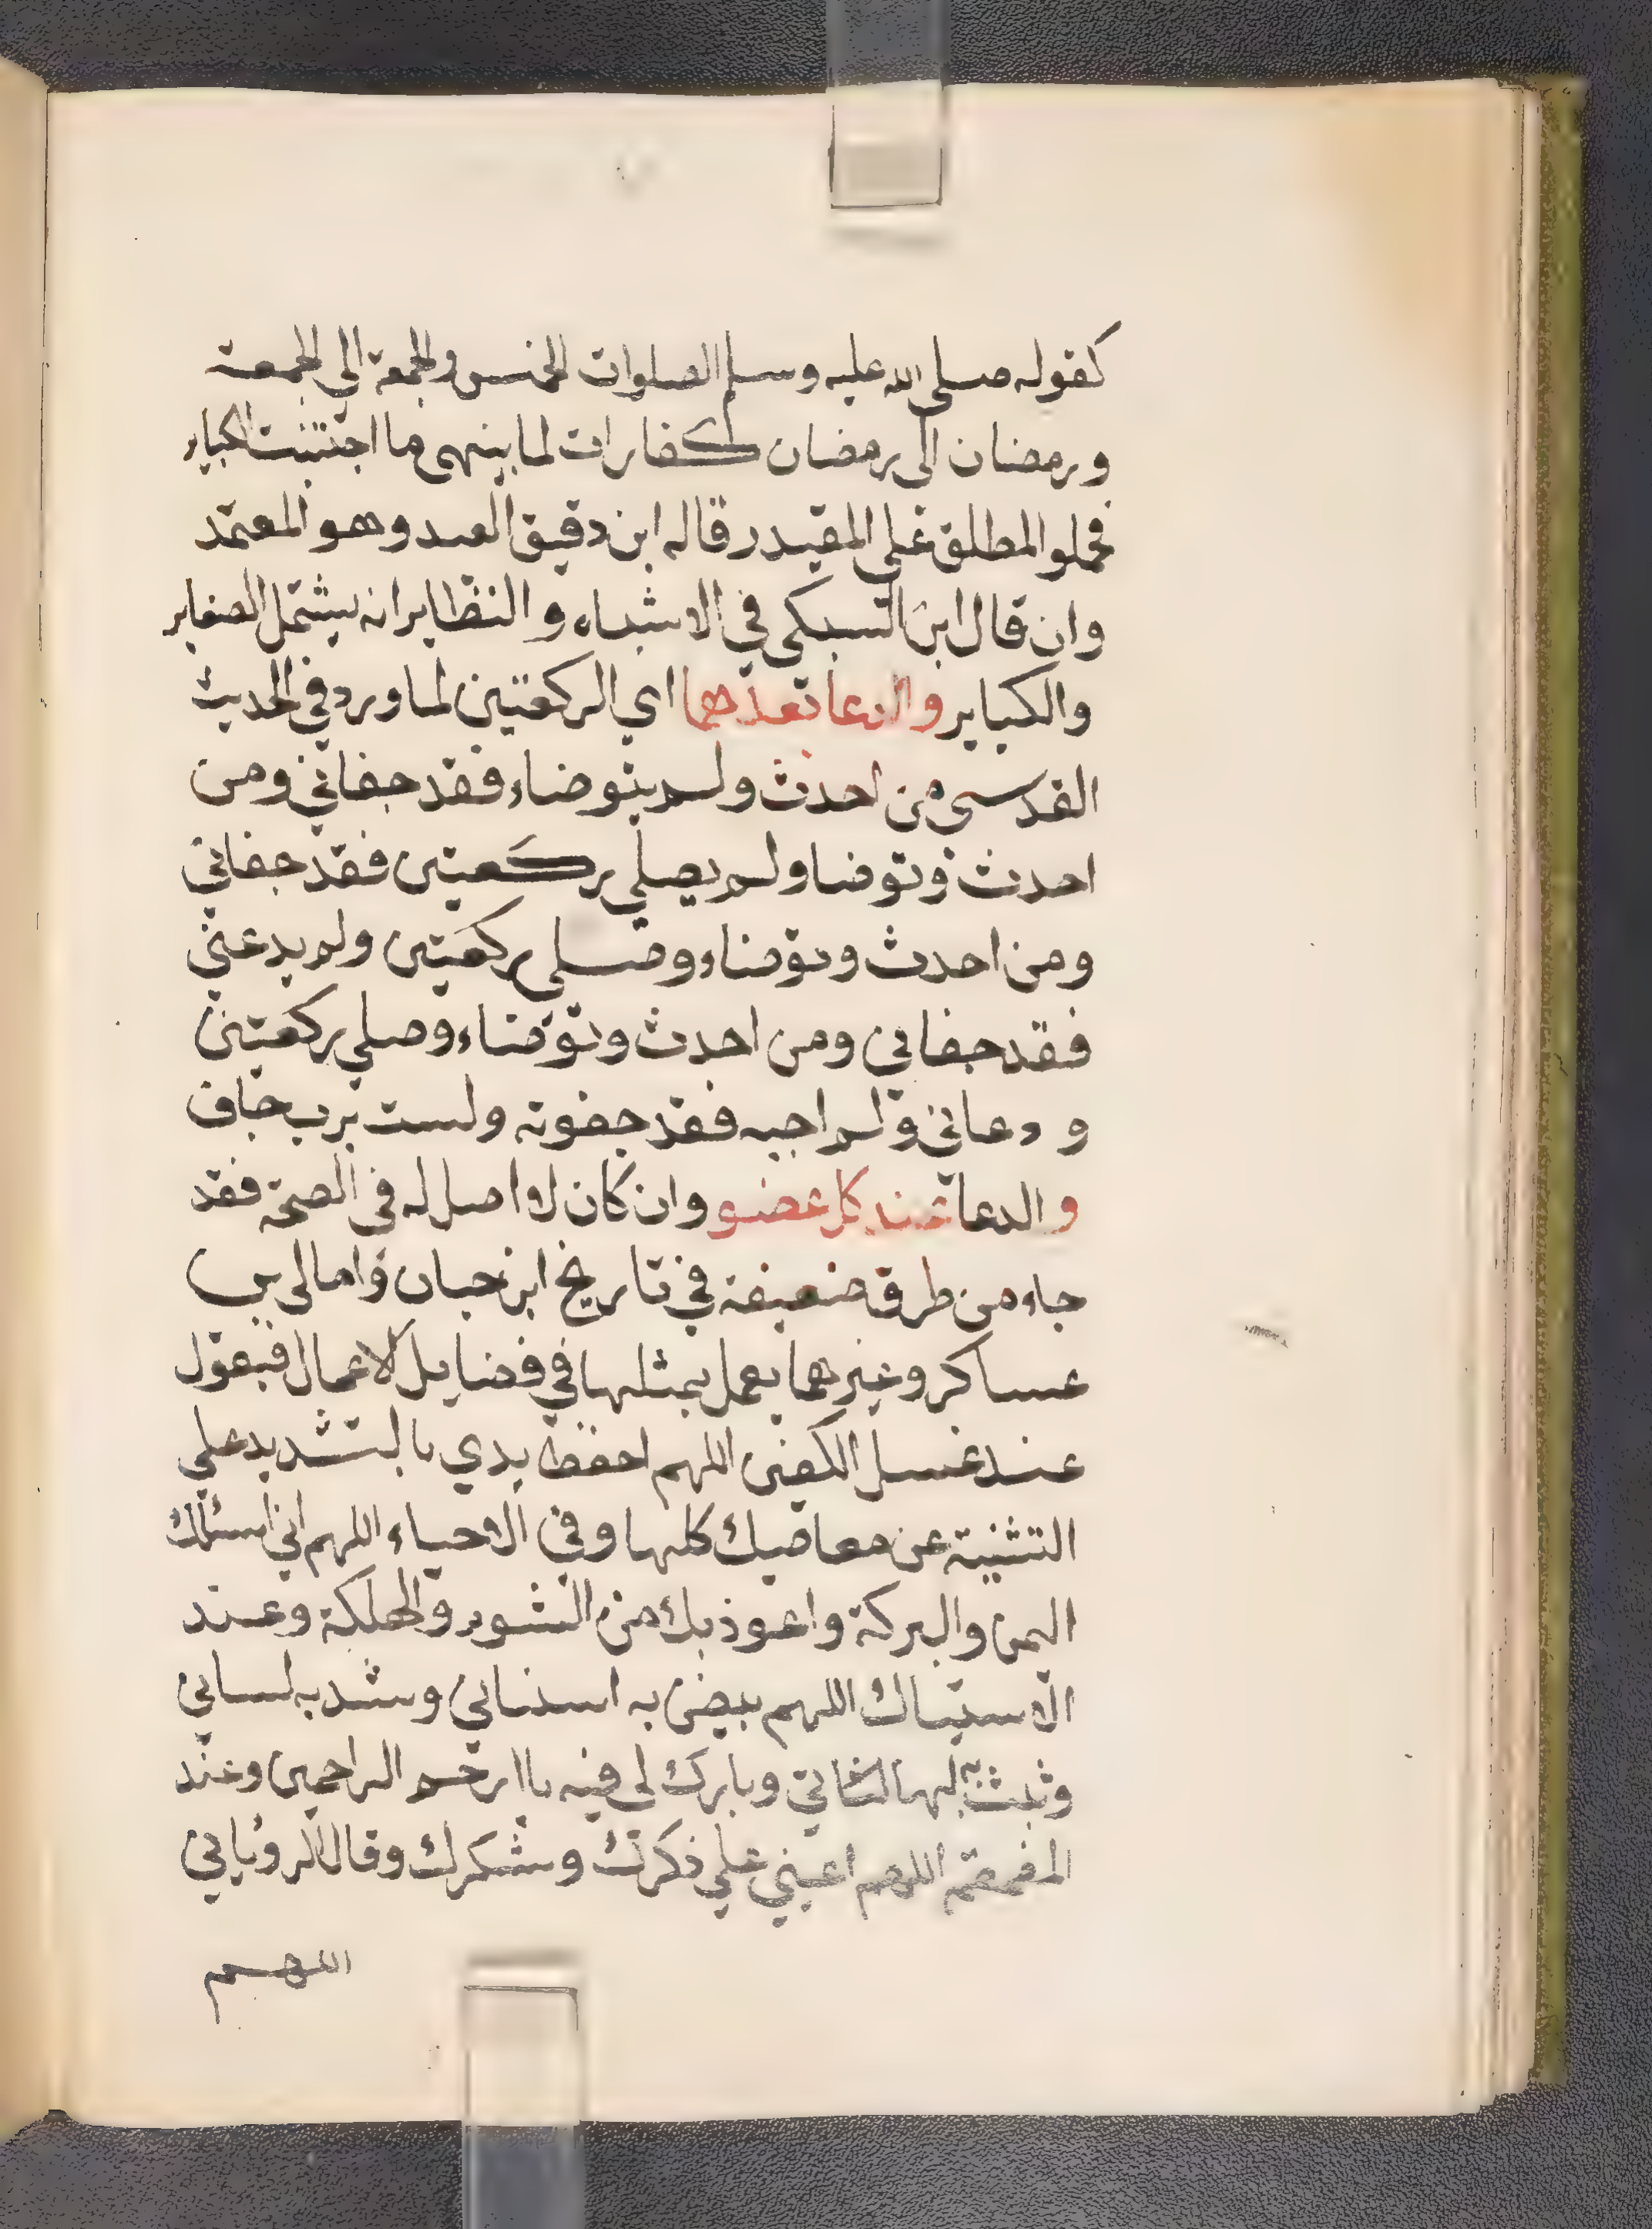 كقوله صلى الله عليه وسلم الصلوات الخمس والجمعة الى الجمعة
ورمضان الى رمضان كفارات لما بينهى ما اجتنبت الكباير
فحملو المطلق على المقيد قاله ابن دقيق العيد وهو المعتمد
وان قال ابن السبكي في الاشباه والنظاير انه يشتمل الصغاير
والكباير والدعا بعدهما اي الركعتين لما ورد في الحديث
القدسي من احدث ولم يتوضاء فقد جفاني ومن
احدث وتوضا ولم يصلي ركعتين فقد جفاني
ومن احدث وتوضاء وصلى ركعتين ولم يدعني
فقد جفاني ومن احدث وتوضاء وصلي ركعتين
ودعاني ولم اجبه فقد جفوته ولست برب جاف
والدعا عند كل عضو وان كان لا اصل له في الصحة فقد
جاء من طرق ضعيفة في تاريخ ابن حبان وامالي بن
عساكر وغيرهما يعمل بمثلها في فضايل الاعمال فيقول
عند غسل الكفين اللهم احفظ يدي بالتشديد علي
التثنية عن معاصيك كلها وفي الاحياء اللهم اني اسئلك
اليمن والبركة واعوذ بك من الشوم والهلكة وعند
الاستياك اللهم بيض به اسناني وشد به لساني
وثبت به لهاتي وبارك لي فيه ياارحم الراحمين وعند
المضمضة اللهم اعني علي ذكرك وشكرك وقال الروياني
اللهم